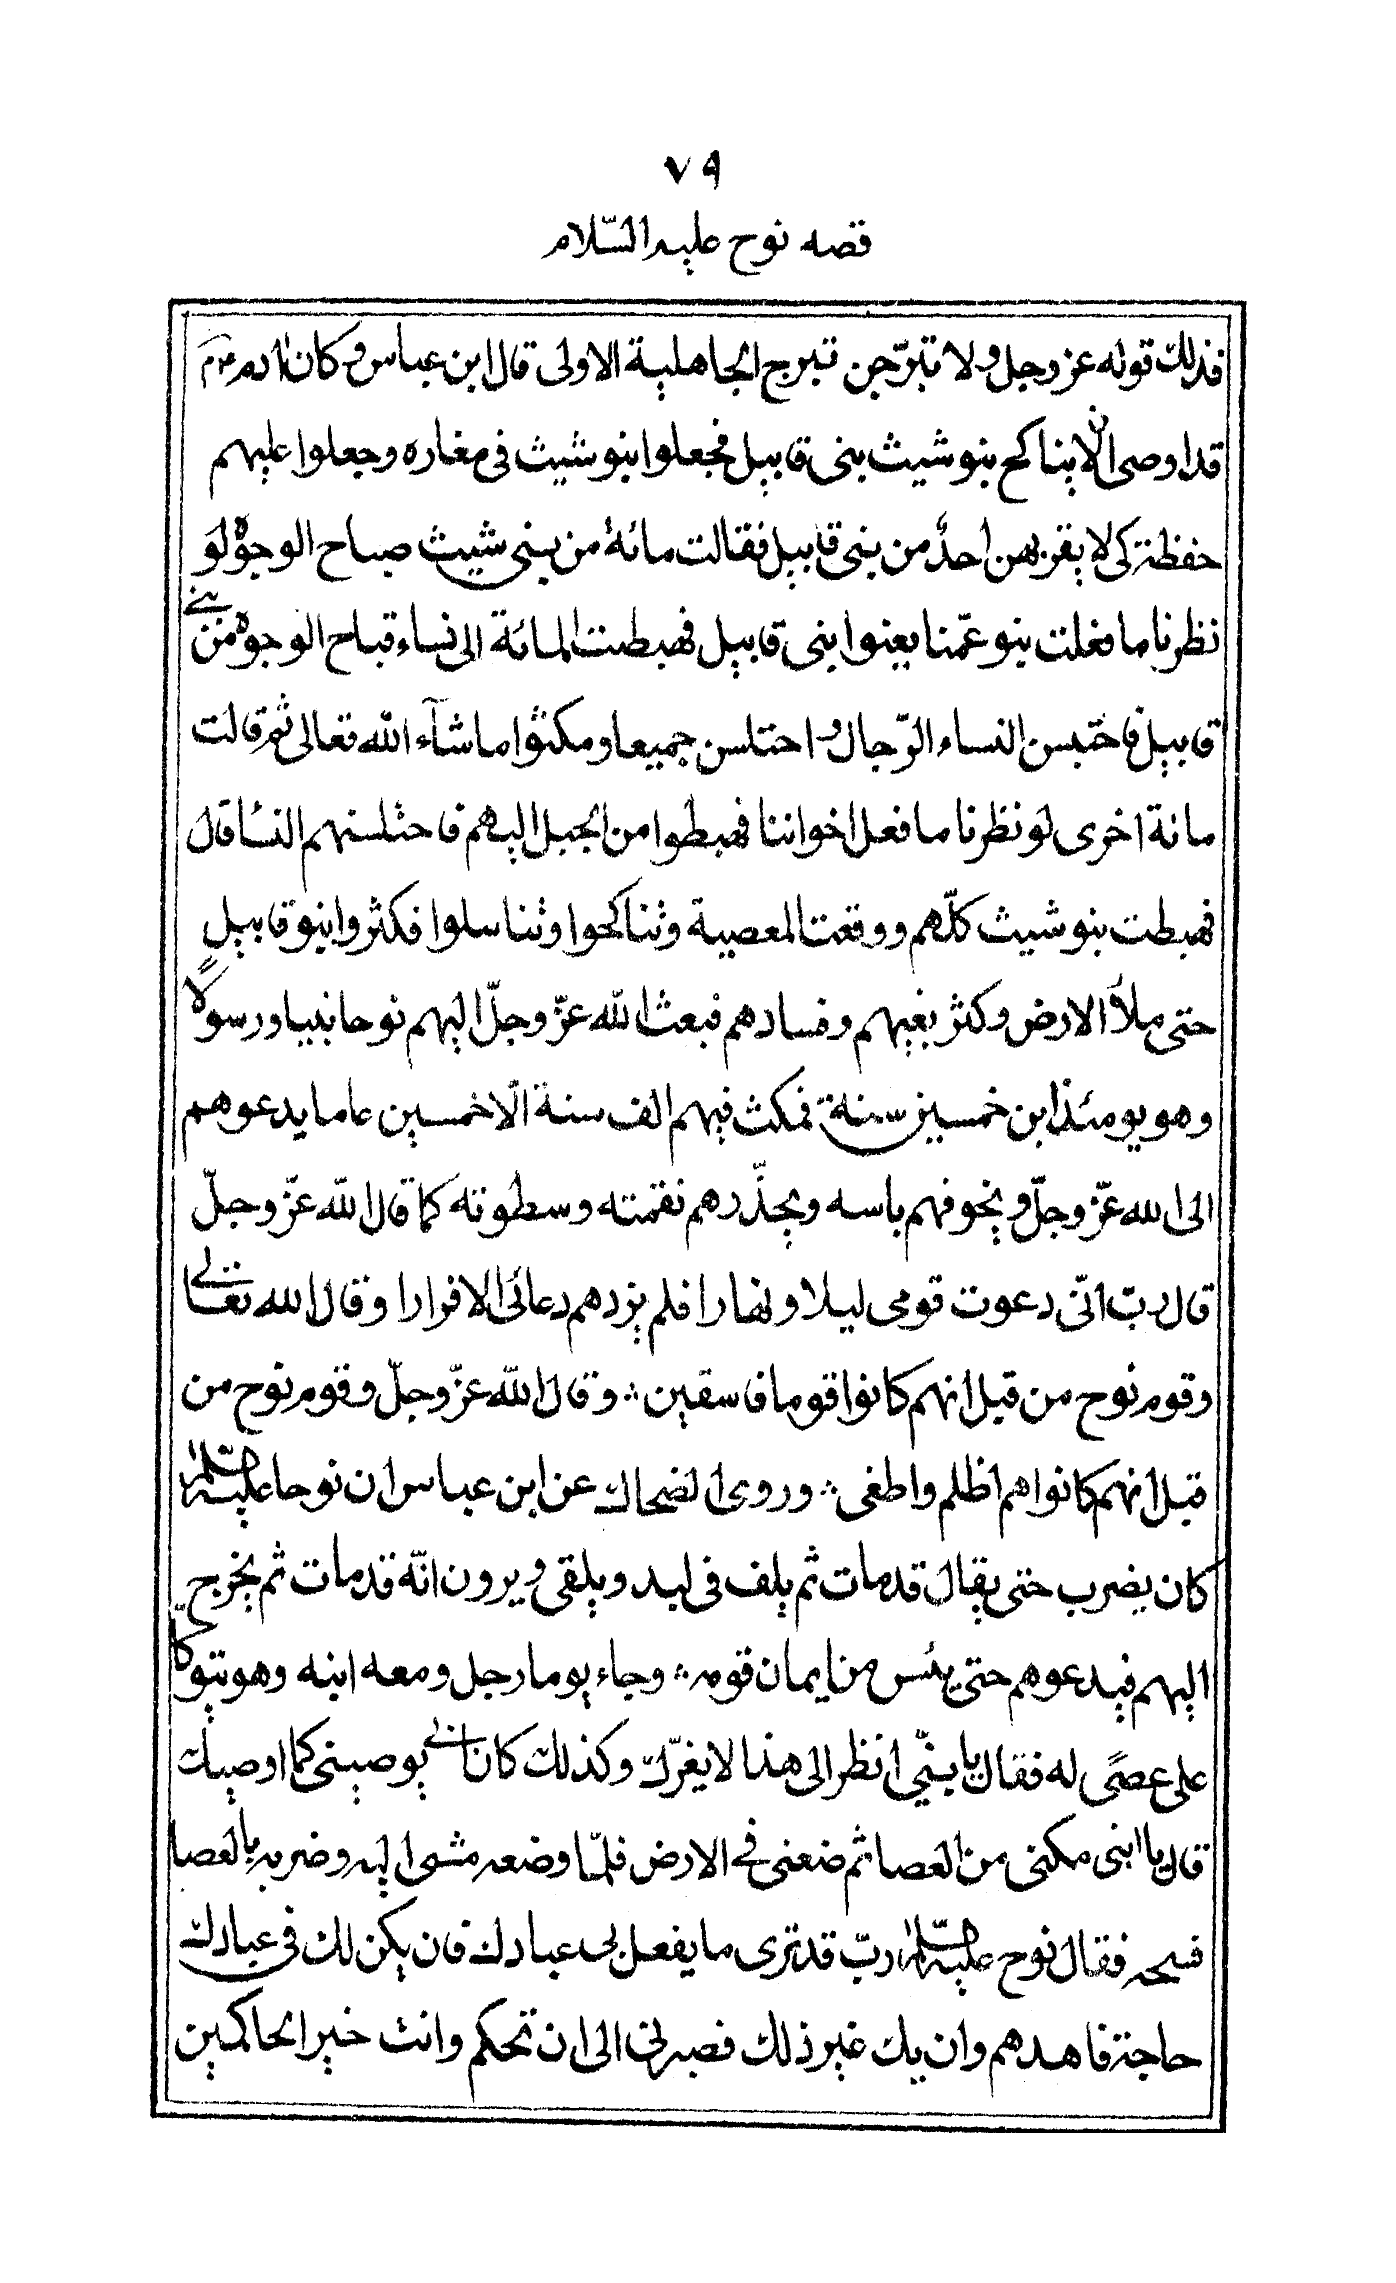 ٧٩
قصه نوح عليه السّلام
فذلك قوله عز وجل ولا تبرّجن تبرج الجاهلية الاولى قال ابن عباس وكان آدم
قد اوصى ان لا يناكح بنو شيث بنى قابيل فجعلوا بنو شيث فى مغاره وجعلوا عليهم
حفظة كى لا يقربهن احدٌ من بنى قابيل فقالت مائة من بنى شيث صباح الوجوه لو
نظرنا ما فعلت بنو عمّنا يعنوا بنى قابيل فهبطت المائة الى نساء قباح الوجوه من بنى
قابيل فاحتبسن النساء الرّجال واختلسن جميعا ومكثوا ما شآء الله تعالى ثم قالت
مائة اخرى لو نظرنا ما فعل اخواننا فهبطوا من الجبل اليهم فاحتلستهم النسا قال
فهبطت بنو شيث كلّهم ووقعت المعصية وتناكحوا وتناسلوا فكثروا بنو قابيل
حتى ملأ الارض وكثر بغيهم وفسادهم فبعث الله عزّ وجلّ اليهم نوحا نبيا ورسولاً
وهو يومئذ ابن خمسين سنة فمكث فيهم الف سنة الّا خمسين عاما يدعوهم
الى الله عزّ وجلّ ويخوفهم باسه ويحذّرهم نقمته وسطوته كما قال الله عزّ وجلّ
قال ربّ انّى دعوت قومى ليلا ونهارا فلم يزدهم دعائى الا فرارا وقال الله تعالى
وقوم نوح من قبل انهم كانوا قوما فاسقين ؞ وقال الله عزّ وجلّ وقوم نوح من
قبل انهم كانوا هم اظلم واطغى ؞ وروى الضحاك عن ابن عباس ان نوحا عليه السّلم
كان يضرب حتى يقال قد مات ثم يلف فى لبد ويلقى ويرون انّه قد مات ثم يخرج
اليهم فيدعوهم حتى يئس من ايمان قومه ؞ وجاء يوما رجل ومعه ابنه وهو يتوكّا
على عصًى له فقال يا بنىّ انظر الى هذا لا يغرّك وكذلك كان ابى يوصينى كما اوصيك
قال يا ابنى مكنى من العصا ثم ضعنى فى الارض فلمّا وضعه مشى اليه وضربه بالعصا
فسجه فقال نوح عليه السّلم ربّ قد ترى ما يفعل بى عبادك فان يكن لك فى عبادك
حاجة فاهدهم وان يك غير ذلك فصبرنى الى ان تحكم وانت خير الحاكمين